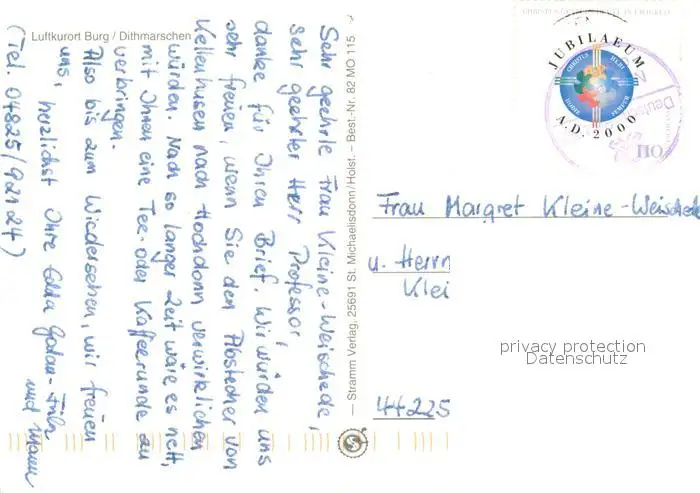 Luftkurort Burg / Dithmarschen
Sehr geehrte Frau Kleine-Weischede,
sehr geehrter Herr Professor,
danke für Ihren Brief. Wir würden uns
sehr freuen, wenn Sie den Abstecher von
Kellenhusen nach Hochdonn verwirklichen
würden. Nach so langer Zeit wäre es nett,
mit Ihnen eine Tee- oder Kaffeerunde zu
verbringen.
Also bis zum Wiedersehen, wir freuen
uns, herzlichst Ihre Edda
und Mann
(Tel. 04825/92124)
— Stramm Verlag, 25691 St. Michaelisdonn/Holst. – Best.-Nr. 82 MO 115
JUBILAEUM
CHRISTUS HERI
HODIE SEMPER
A.D. 2000
110
Frau Margret Kleine-Weisched
u. Herrn
Klei
44225
privacy protection
Datenschutz